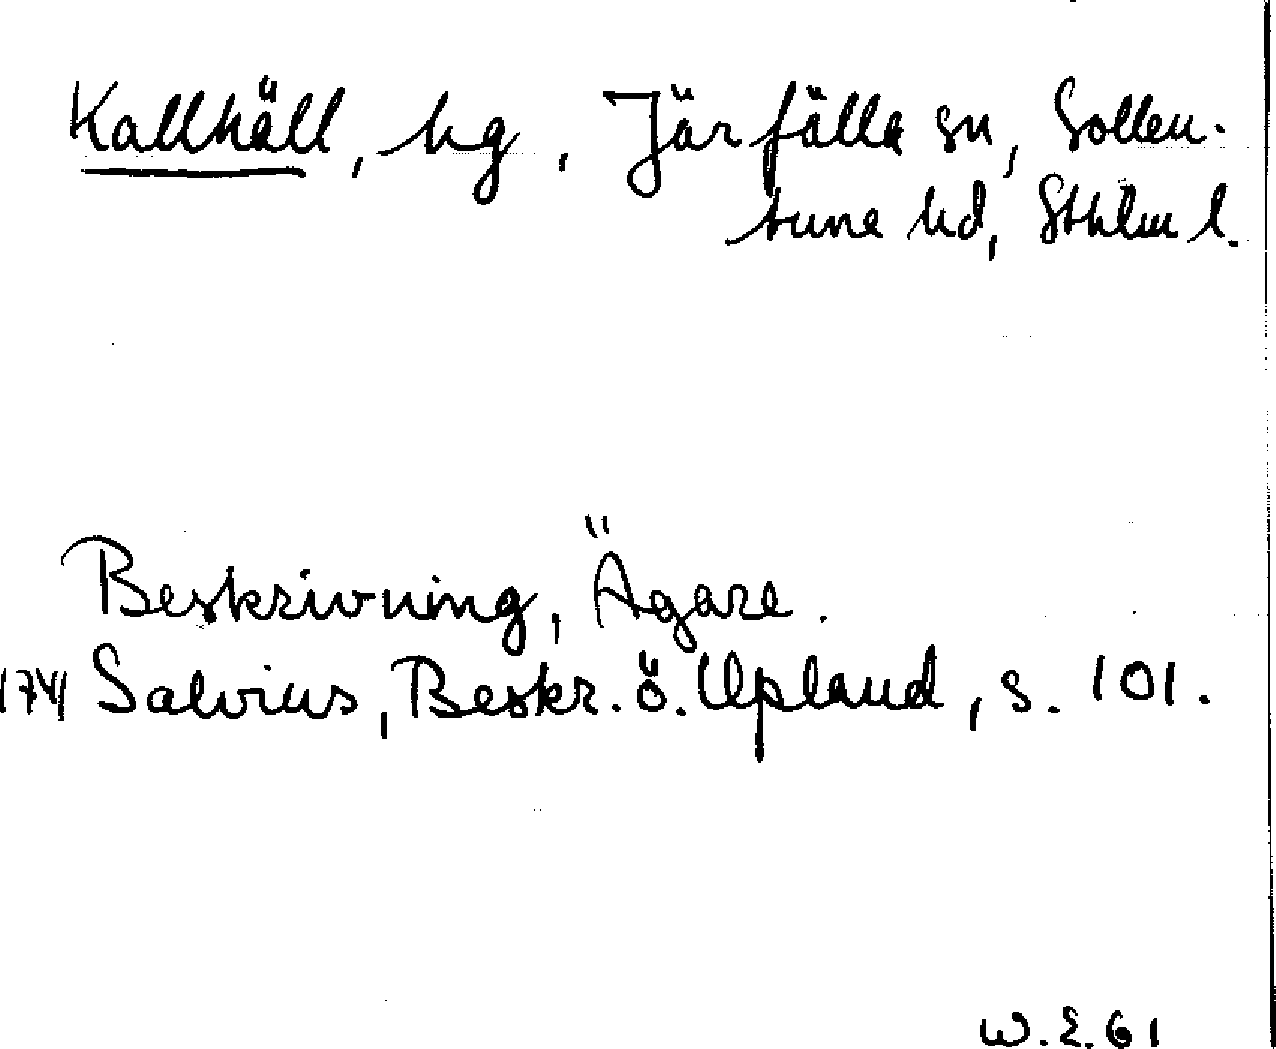 Kallhäll, hg, Järfälla sn, Sollen-
tuna hd, Sthlm l.
Beskrivning, Ägare.
1741 Salvius, Beskr. ö. Upland, s. 101.
W. E. 61